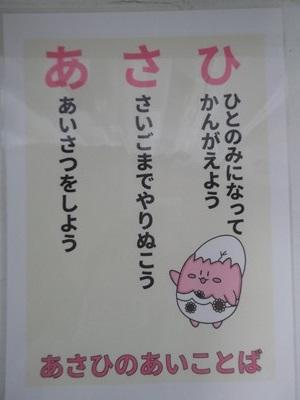 あ さ ひ
ひとのみになって
かんがえよう
さいごまでやりぬこう
あいさつをしよう
あさひのあいことば